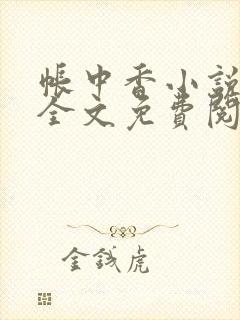 帳中香小說
全文免費閱
金錢虎